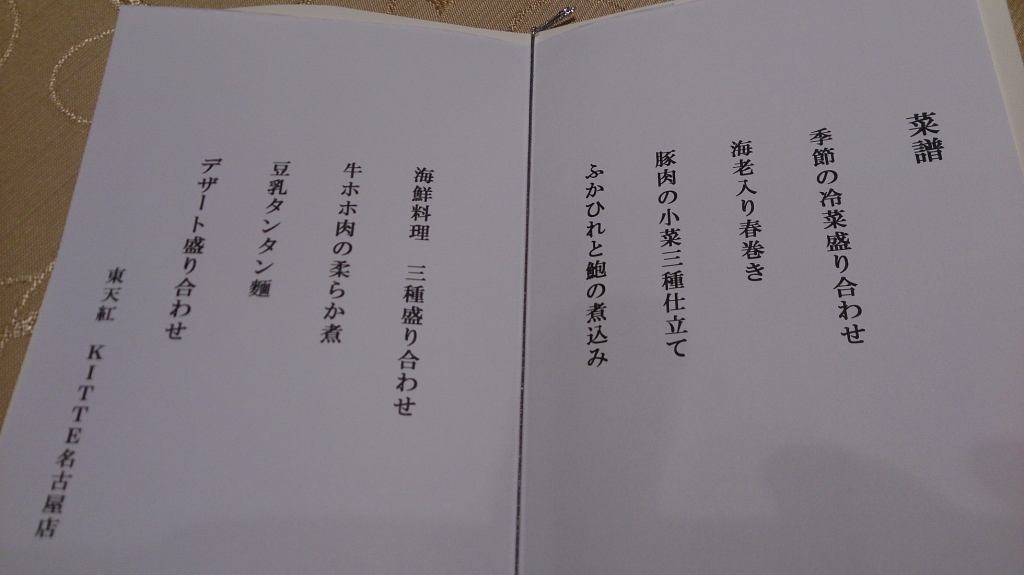 菜譜
季節の冷菜盛り合わせ
海老入り春巻き
豚肉の小菜三種仕立て
ふかひれと鮑の煮込み
海鮮料理　三種盛り合わせ
牛ホホ肉の柔らか煮
豆乳タンタン麺
デザート盛り合わせ
東天紅　KITTE名古屋店